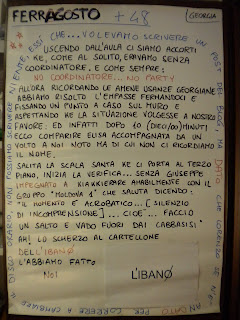 FERRAGOSTO + 48
GEORGIA
CHE... VOLEVAMO SCRIVERE UN POST NEL BLOG, MA DATO CHE LORENZO SE NE
PER CORRERE A CAMBIARE
ORARIO, NON POSSIAMO SCRIVERE
USCENDO DALL'AULA CI SIAMO ACCORTI
KE, COME AL SOLITO, ERAVAMO SENZA
COORDINATORE, E COME SEMPRE:
NO COORDINATORE... NO PARTY
ALLORA RICORDANDO LE AMENE USANZE GEORGIANE
ABBIAMO RISOLTO L'EMPASSE FERMANDOCI E
FISSANDO UN PUNTO A CASO SUL MURO E
ASPETTANDO KE LA SITUAZIONE VOLGESSE A NOSTRO
FAVORE. ED INFATTI DOPO 10 (DIECI/00) MINUTI
ECCO COMPARIRE ELISA ACCOMPAGNATA DA UN
VOLTO A NOI NOTO MA DI CUI NON CI RICORDIAMO
IL NOME.
SALITA LA SCALA SANTA KE CI PORTA AL TERZO
PIANO, INIZIA LA VERIFICA... SENZA GIUSEPPE
IMPEGNATO A KIAKKIERARE AMABILMENTE CON IL
GRUPPO "MOLDOVA 1" CHE SALUTA DICENDO:
"IL MOMENTO È ACROBATICO... [SILENZIO
DI INCOMPRENSIONE]... CIOE'... FACCIO
UN SALTO E VADO FUORI DAI CABBASISI"
AH! LO SCHERZO AL CARTELLONE
DELL'LIBANO
L'ABBIAMO FATTO
NOI
LIBANO